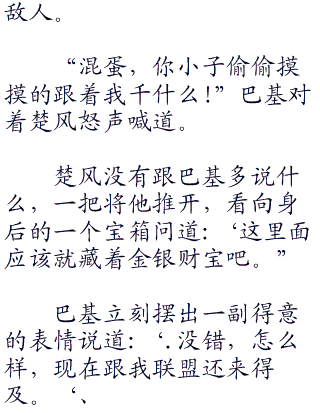 敌人。
“混蛋，你小子偷偷摸
摸的跟着我干什么!”巴基对
着楚风怒声喊道。
楚风没有跟巴基多说什
么，一把将他推开，看向身
后的一个宝箱问道：‘这里面
应该就藏着金银财宝吧。”
巴基立刻摆出一副得意
的表情说道：‘.没错，怎么
样，现在跟我联盟还来得
及。‘、